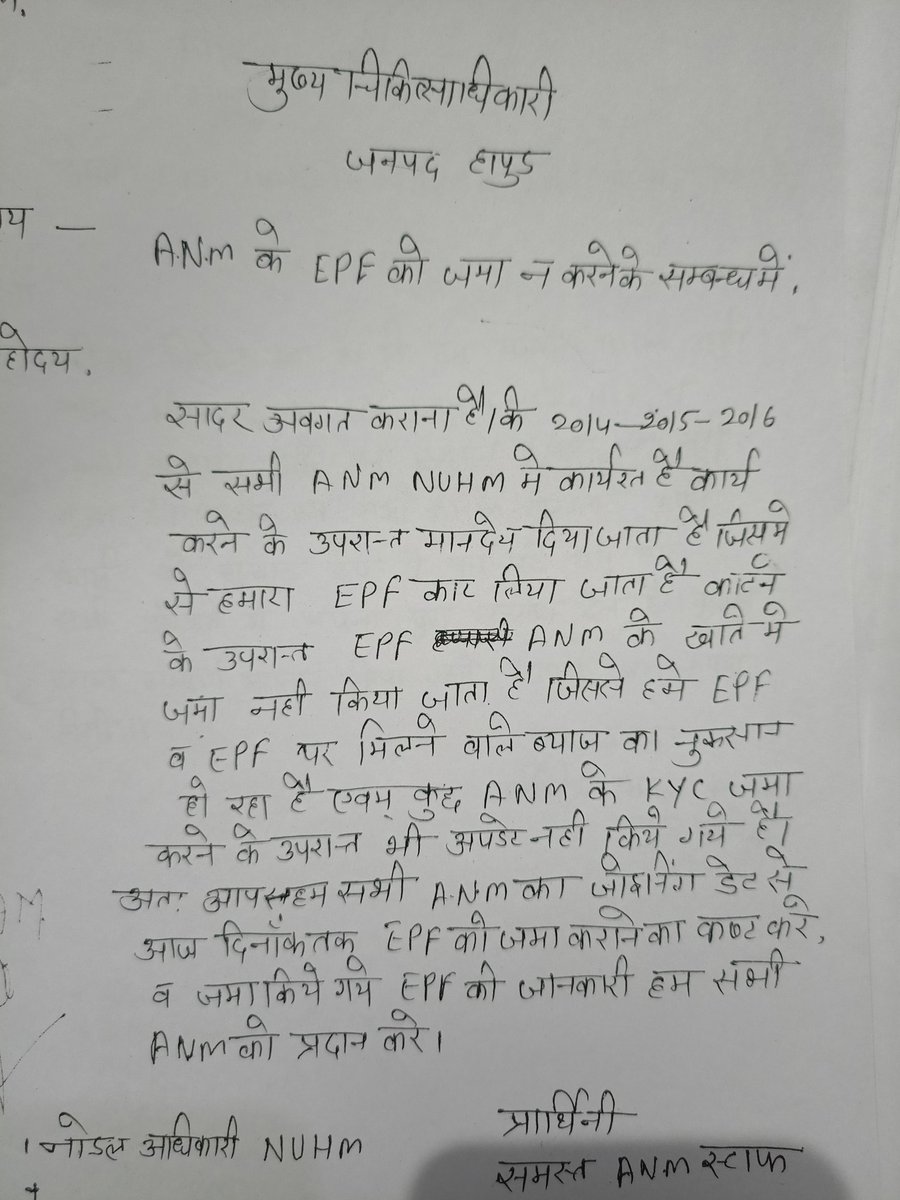 मुख्य चिकित्साधिकारी
जनपद हापुड
य —
A.N.M के EPF को जमा न करने के सम्बन्ध में.
होदय.
सादर अवगत कराना है। कि 2014-2015-2016
से सभी ANM NUHM मे कार्यरत है कार्य
करने के उपरान्त मानदेय दिया जाता है जिसमे
से हमारा EPF काट लिया जाता है काटने
के उपरान्त EPF ANM के खाते मे
जमा नही किया जाता है जिससे हमे EPF
व EPF पर मिलने वाले ब्याज का नुकसान
हो रहा है एवम् कुछ ANM के KYC जमा
करने के उपरान्त भी अपडेट नही किये गये है।
अतः आप हम सभी A.N.M का जोइनिंग डेट से
आज दिनाँक तक EPF को जमा कराने का कष्ट करे,
व जमा किये गये EPF की जानकारी हम सभी
ANM को प्रदान करे।
प्रार्थिनी
। नोडल अधिकारी NUHM
समस्त ANM स्टाफ